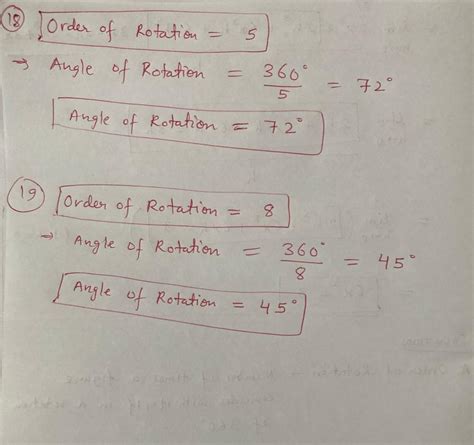 18 Order of Rotation = 5
→ Angle of Rotation = 360°/5 = 72°
Angle of Rotation = 72°
19 Order of Rotation = 8
→ Angle of Rotation = 360°/8 = 45°
Angle of Rotation = 45°